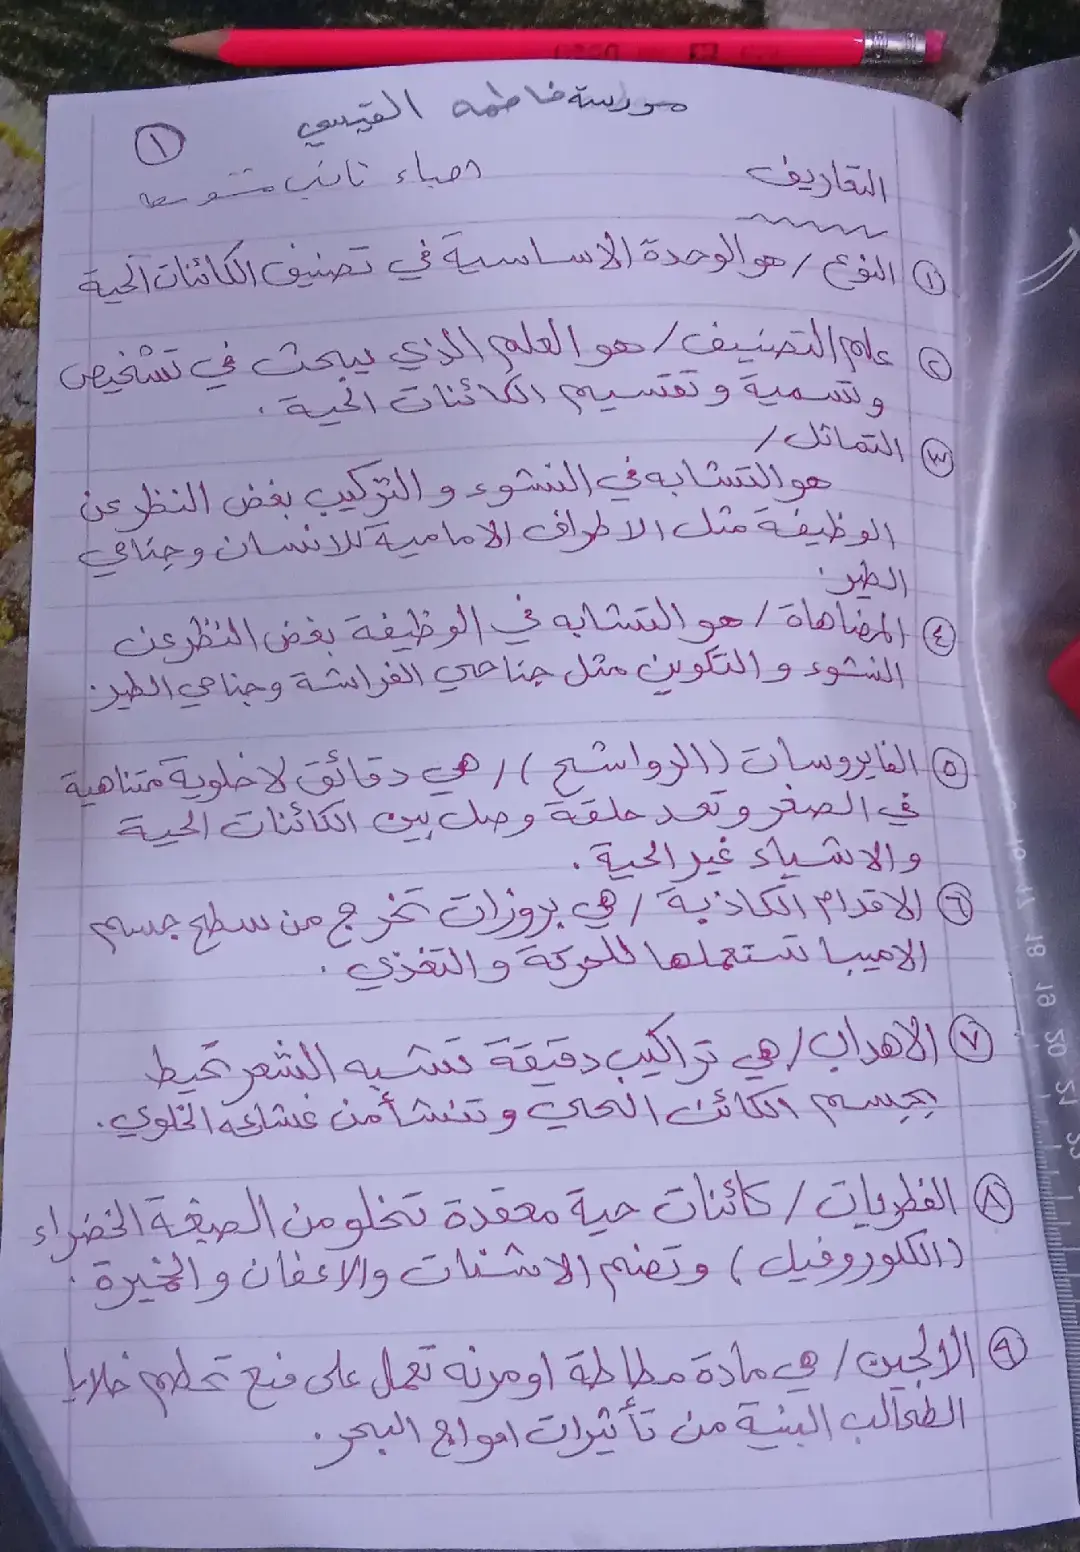 مدرسة فاطمه القيسي
١
احياء ثاني متوسط
التعاريف
١ النوع / هو الوحدة الاساسية في تصنيف الكائنات الحية
٢ علم التصنيف / هو العلم الذي يبحث في تشخيص
وتسمية وتقسيم الكائنات الحية .
٣ التماثل /
هو التشابه في النشوء و التركيب بغض النظر عن
الوظيفة مثل الاطراف الامامية للانسان وجناحي
الطير.
٤ المضاهاة / هو التشابه في الوظيفة بغض النظر عن
النشوء و التكوين مثل جناحي الفراشة وجناحي الطير.
٥ الفايروسات (الرواشح) / هي دقائق لاخلوية متناهية
في الصغر وتعد حلقة وصل بين الكائنات الحية
والاشياء غير الحية .
٦ الاقدام الكاذبة / هي بروزات تخرج من سطح جسم
الاميبا تستعملها للحركة والتغذي .
٧ الاهداب / هي تراكيب دقيقة تشبه الشعر تحيط
بجسم الكائن الحي وتنشأ من غشائه الخلوي.
٨ الفطريات / كائنات حية معقدة تخلو من الصبغة الخضراء
(الكلوروفيل) وتضم الاشنات والاعفان والخميرة .
٩ الالجين / هي مادة مطاطة او مرنه تعمل على منع تحطم خلايا
الطحالب البنية من تأثيرات امواج البحر .
18 19 20 21